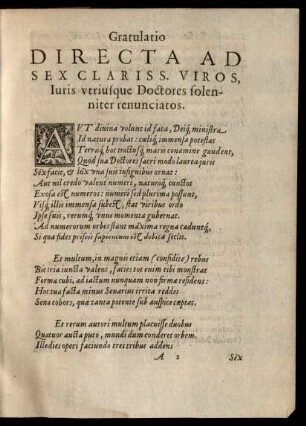 Gratulatio
DIRECTA AD
SEX CLARISS. VIROS,
Iuris vtriusque Doctores solen-
niter renunciatos.
AVT diuina volunt id fata, Deiq́; ministra
Id natura probat: cœliq́; immensa potestas
Terraq́; hoc tractusq́; maris conamine gaudent,
Quod sua Doctores sacri modo laurea juris
Sex facit, & lux una suis insignibus ornat:
Aut nil credo valent numeri, naturaq́; cunctos
Exosa est numeros: numeri sed plurima possunt,
Visq́; illis immensa subest, stat viribus ordo
Ipse suis, rerumq́; vices momenta gubernat.
Ad numerorum orbes stant maxima regna caduntq́;
Si qua fides priscis sapientum est debita sectis.
Et multum, in magnis etiam (confidite) rebus
Bis tria juncta valent, facies tot enim tibi monstrat
Forma cubi, ad jactum nunquam non firma residens:
Hoc tua facta minus Senarius irrita reddet
Sena cohors, quæ tanta potente sub auspice cœptas.
Et rerum autori multum placuisse duobus
Quatuor aucta puto, mundi dum conderet orbem.
Ille dies operi faciundo tres tribus addens
A 2 Sex